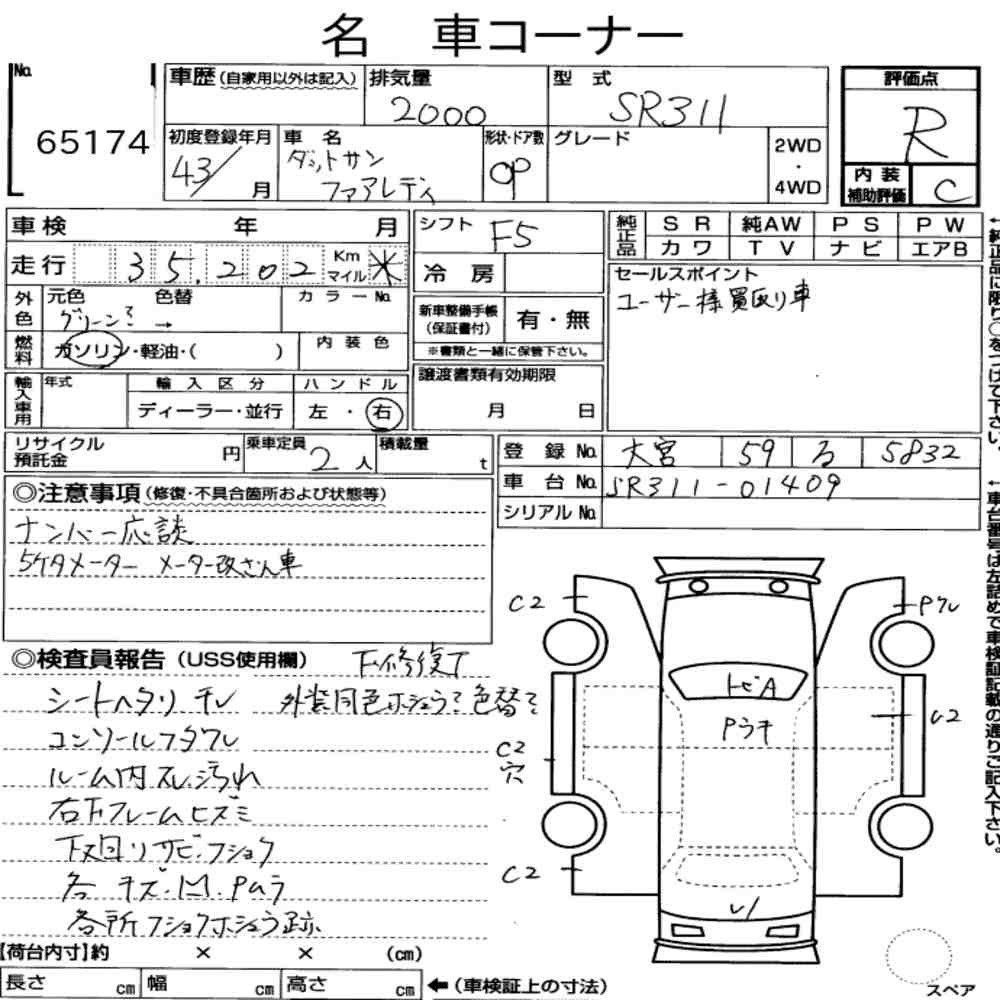 名 車コーナー
No.
65174
車歴(自家用以外は記入)
排気量
2000
型 式
SR311
評価点
R
初度登録年月
43/ 月
車 名
ダットサン
フェアレディ
形状・ドア数
OP
グレード
2WD
・
4WD
内 装
補助評価
C
車 検 年 月
走 行 35,202 Km マイル *
シフト F5
冷 房
純正品
S R 純AW P S P W
カ ワ T V ナ ビ エアB
セールスポイント
ユーザー様買取り車
外色
元色 色替 カ ラ ー No.
グリーン? →
燃料
ガソリン・軽油・( )
内 装 色
新車整備手帳
(保証書付)
有・無
※書類と一緒に保管下さい。
輸入車用
年式
輸 入 区 分
ディーラー・並行
ハ ン ド ル
左 ・ 右
譲渡書類有効期限
月 日
リサイクル
預託金
円
乗車定員
2 人
積載量
t
登 録 No. 大宮 59 る 5832
車 台 No. SR311-01409
シリアル No.
◎注意事項(修復・不具合箇所および状態等)
ナンバー応談
5ケタメーター メーター改ざん車
◎検査員報告(USS使用欄) 下修復了
シートヘタリ チレ 外装同色ホシュウ? 色替?
コンソールフタワレ
ルーム内スレ汚れ
右下フレームヒズミ
下回リサビ・フショク
各 キズ・凹・Pムラ
各所フショクホシュウ跡
C2
Pワレ
トビA
Pウキ
C2
穴
U2
C2
U1
スペア
【荷台内寸】約 × × (cm)
長さ cm 幅 cm 高さ cm ←(車検証上の寸法)
←純正品に限り○をつけて下さい。
←車台番号は左詰めで車検証記載の通りご記入下さい。